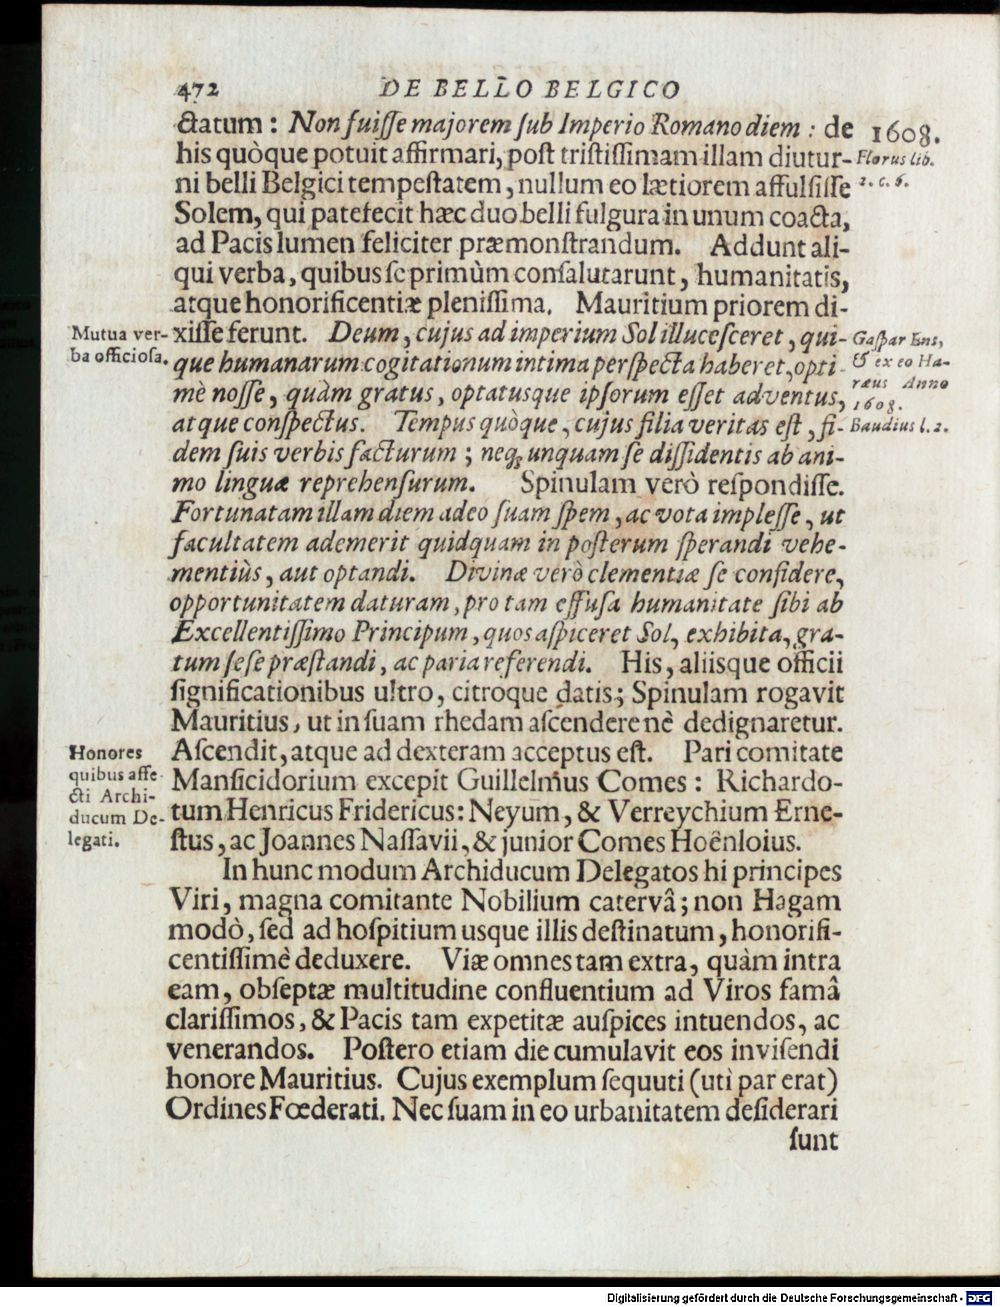 472 DE BELLO BELGICO
ctatum: Non fuiſſe majorem ſub Imperio Romano diem: de
1608.
his quòque potuit affirmari, poſt triſtiſſimam illam diutur-
Florus lib.
ni belli Belgici tempeſtatem, nullum eo lætiorem affulſiſſe
2. c. 6.
Solem, qui patefecit hæc duo belli fulgura in unum coacta,
ad Pacis lumen feliciter præmonſtrandum. Addunt ali-
qui verba, quibus ſe primùm conſalutarunt, humanitatis,
atque honorificentiæ pleniſſima. Mauritium priorem di-
Mutua ver-
ba officioſa.
xiſſe ferunt. Deum, cujus ad imperium Sol illuceſceret, qui-
que humanarum cogitationum intima perſpecta haberet, opti-
mè noſſe, quàm gratus, optatusque ipſorum eſſet adventus,
atque conſpectus. Tempus quòque, cujus filia veritas eſt, fi-
Gaſpar Ens,
& ex eo Ha-
ræus Anno
1608.
Baudius l. 2.
dem ſuis verbis facturum; neq; unquam ſe diſſidentis ab ani-
mo linguæ reprehenſurum. Spinulam verò reſpondiſſe.
Fortunatam illam diem adeo ſuam ſpem, ac vota impleſſe, ut
facultatem ademerit quidquam in poſterum ſperandi vehe-
mentiùs, aut optandi. Divinæ verò clementiæ ſe confidere,
opportunitatem daturam, pro tam effuſa humanitate ſibi ab
Excellentiſſimo Principum, quos aſpiceret Sol, exhibita, gra-
tum ſeſe præſtandi, ac paria referendi. His, aliisque officii
ſignificationibus ultro, citroque datis; Spinulam rogavit
Mauritius, ut in ſuam rhedam aſcendere nè dedignaretur.
Honores
quibus affe-
cti Archi-
ducum De-
legati.
Aſcendit, atque ad dexteram acceptus eſt. Pari comitate
Manſicidorium excepit Guillelmus Comes: Richardo-
tum Henricus Fridericus: Neyum, & Verreychium Erne-
ſtus, ac Joannes Naſſavii, & junior Comes Hoênloius.
In hunc modum Archiducum Delegatos hi principes
Viri, magna comitante Nobilium catervâ; non Hagam
modò, ſed ad hoſpitium usque illis deſtinatum, honorifi-
centiſſimè deduxere. Viæ omnes tam extra, quàm intra
eam, obſeptæ multitudine confluentium ad Viros famâ
clariſſimos, & Pacis tam expetitæ auſpices intuendos, ac
venerandos. Poſtero etiam die cumulavit eos inviſendi
honore Mauritius. Cujus exemplum ſequuti (uti par erat)
Ordines Fœderati. Nec ſuam in eo urbanitatem deſiderari
ſunt
Digitalisierung gefördert durch die Deutsche Forschungsgemeinschaft - DFG